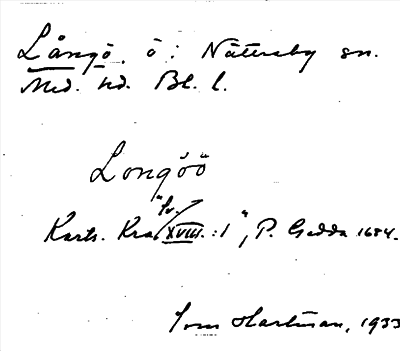 Långö. ö i Nättraby sn.
Med. hd. Bl. l.
Longöö
Kartv. Kra XVIII. :1", P. Gedda 1684.
Tom Hartman, 1933